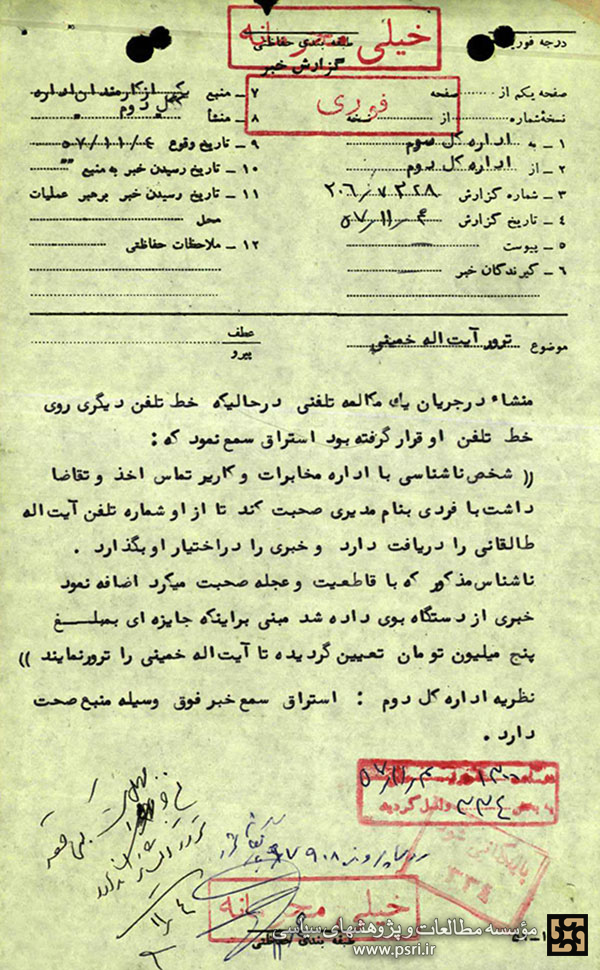 خیلی محرمانه
درجه فوریت
طبقه بندی حفاظتی
گزارش خبر
فوری
صفحه یکم از صفحه
نسخه شماره از نسخه
۱ - به اداره کل سوم
۲ - از اداره کل دوم
۳ - شماره گزارش ۲۰۶/۷۳۲۸
۴ - تاریخ گزارش ۵۷/۱۱/۴
۵ - پیوست
۶ - گیرندگان خبر
۷ - منبع یکی از کارمندان اداره کل دوم
۸ - منشأ
۹ - تاریخ وقوع ۵۷/۱۱/۴
۱۰ - تاریخ رسیدن خبر به منبع "
۱۱ - تاریخ رسیدن خبر برهبر عملیات
محل
۱۲ - ملاحظات حفاظتی
موضوع ترور آیت اله خمینی
عطف
پیرو
منشاء درجریان یك مکالمه تلفنی درحالیکه خط تلفن دیگری روی
خط تلفن او قرار گرفته بود استراق سمع نمود که :
(( شخص ناشناسی با اداره مخابرات و کاریر تماس اخذ و تقاضا
داشت با فردی بنام مدیری صحبت کند تا از او شماره تلفن آیت اله
طالقانی را دریافت دارد و خبری را دراختیار او بگذارد .
ناشناس مذکور که با قاطعیت و عجله صحبت میکرد اضافه نمود
خبری از دستگاه بوی داده شد مبنی براینکه جایزه ای بمبلــغ
پنج میلیون تومان تعیین گردیده تا آیت اله خمینی را ترورنمایند ))
نظریه اداره کل دوم : استراق سمع خبر فوق وسیله منبع صحت
دارد .
۱۳۰۰ ۵۷/۱۱/۴
به بخش ۳۳۴ واصل گردید
بایگانی شود
۳۳۴
۱۱/۴
خیلی محرمانه
طبقه بندی حفاظتی
مؤسسه مطالعات و پژوهشهای سیاسی
www.psri.ir